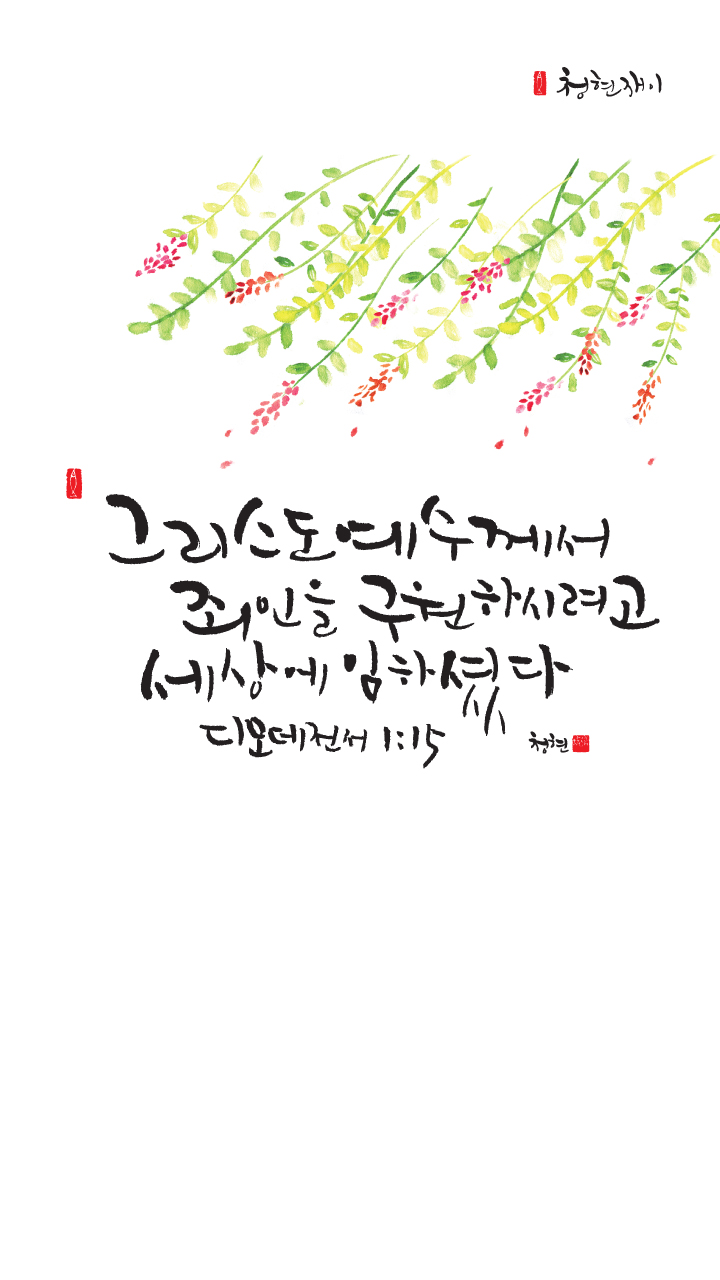 청현재이
그리스도예수께서
죄인을 구원하시려고
세상에 임하셨다
디모데전서 1:15
청현